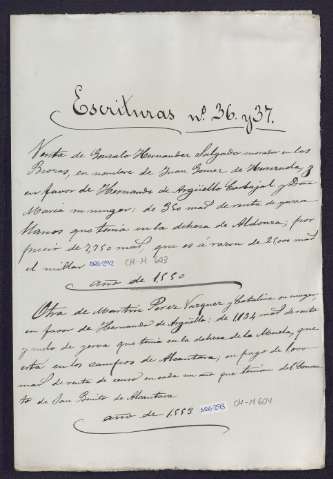 Escrituras nº 36. y 37.
Venta de Gonzalo Hernandez Salgado morador en las
Brozas, en nombre de Juan Gomez de Hinarada, y
en favor de Hernando de Argüello Carbajal, y Doña
Maria su muger: de 350 mas de renta de yerva
llanos que tenia en la dehesa de Aldonza; por
precio de 8,750 mas, que es á razon de 25000 mas
el millar CH-H 603
año de 1550
Otra de Martin Perez Vazquez y Catalina su muger,
en favor de Hernando de Argüello; de 1824 mas de renta
y medio de yerva que tenia en la dehesa de la
está en los campos de Alcantara; en pago de
mas de renta de censo en cada un año que tenia del Conven
to de San Benito de Alcantara
año de 1553 CH-H 604